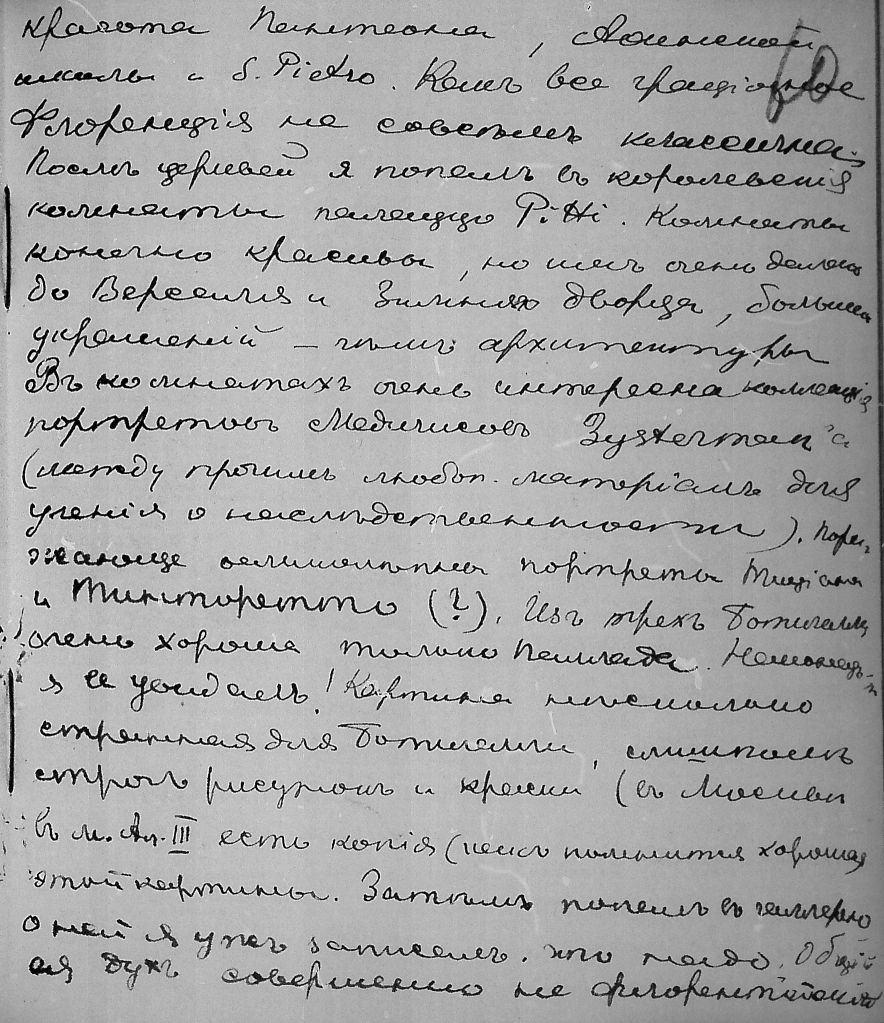 красота Пантеона, Афинской
школы и S. Pietro. Какъ все граціозное
10
Флоренція не совсѣмъ классична.
Послѣ церквей я попалъ въ королевскія
комнаты палаццо Pitti. Комнаты
конечно красивы, но имъ очень далеко
до Версаля и Зимняго дворца, больше
украшеній – чѣмъ архитектуры
Въ комнатахъ очень интересна коллекція
портретовъ Медичисовъ Зустerman'а
(между прочимъ любоп. матеріалъ для
ученія о наслѣдственности). Пора-
жающе великолѣпны портреты Тиціана
и Тинторетто (?). Изъ трехъ Боттичелли
очень хороша только Паллада. Наконецъ-т
я ее увидалъ! Картина нѣсколько
странная для Боттичелли, слишкомъ
строгъ рисунокъ и краски (въ Москвѣ
въ м. Ал. III есть копія (какъ помнится хорошая
этой картины. Затѣмъ попалъ въ галлерею
о ней я ужъ записалъ что надо. Общій
ея духъ совершенно не флорентійскій